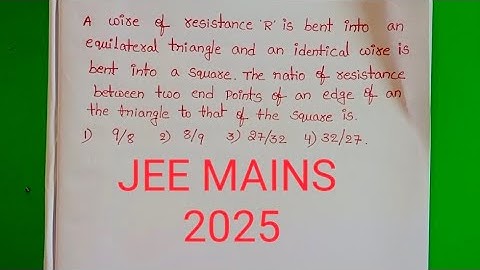 A wire of resistance 'R' is bent into an
equilateral triangle and an identical wire is
bent into a square. The ratio of resistance
between two end points of an edge of an
the triangle to that of the square is.
1) 9/8 2) 8/9 3) 27/32 4) 32/27.
JEE MAINS
2025